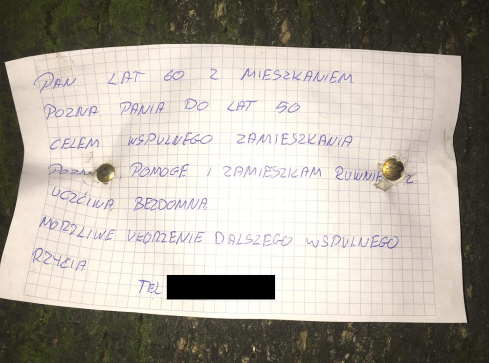 PAN LAT 60 Z MIESZKANIEM
POZNA PANIA DO LAT 50
CELEM WSPULNEGO ZAMIESZKANIA
POMOGE I ZAMIESZKAM RUWNIE Z
UCZCIWA BEZDOMNA
MORZLIWE UŁORZENIE DALSZEGO WSPULNEGO
RZYCIA
TEL